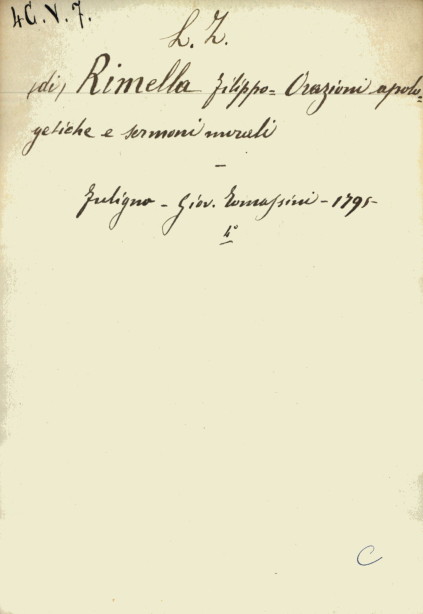 4C.V.7.
L. Z.
(di) Rimella Filippo = Orazioni apolo=
getiche e sermoni murali
-
Fuligno - Giov. Tomassini - 1795 -
4°
C